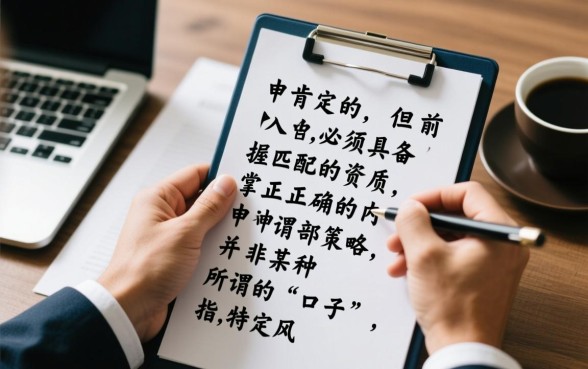 申肯定的，但前
入曾,必须具备
握匹配的资质，
掌正正确的内
申神谓部策略，
并非某种
所谓的“口子”，
指,特定风